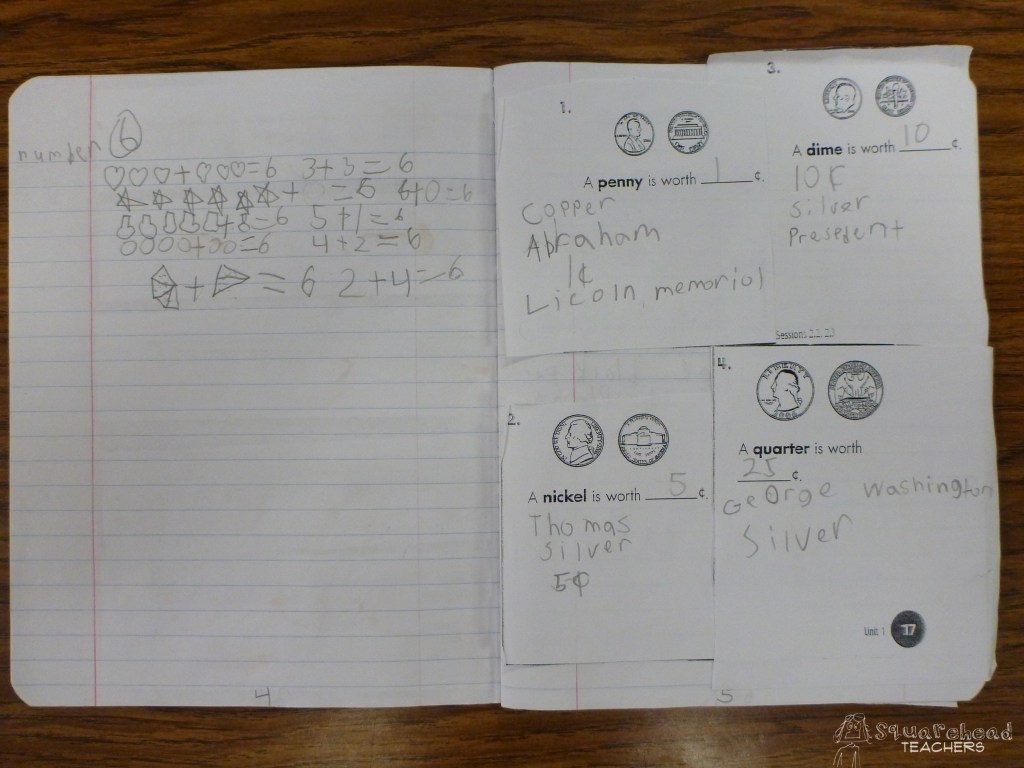 number 6
+ =6 3+3=6
+ =6 6+0=6
+ =6 5+1=6
+ =6 4+2=6
+ =6 2+4=6
4
1.
A penny is worth 1 ¢.
Copper
Abraham
1¢
Licoln memoriol
2.
A nickel is worth 5 ¢.
Thomas
silver
5¢
3.
A dime is worth 10 ¢.
10¢
silver
Presedent
Sessions 2.2, 2.3
4.
A quarter is worth
25 ¢.
George Washington
Silver
Unit 1 17
5
Squarehead
TEACHERS